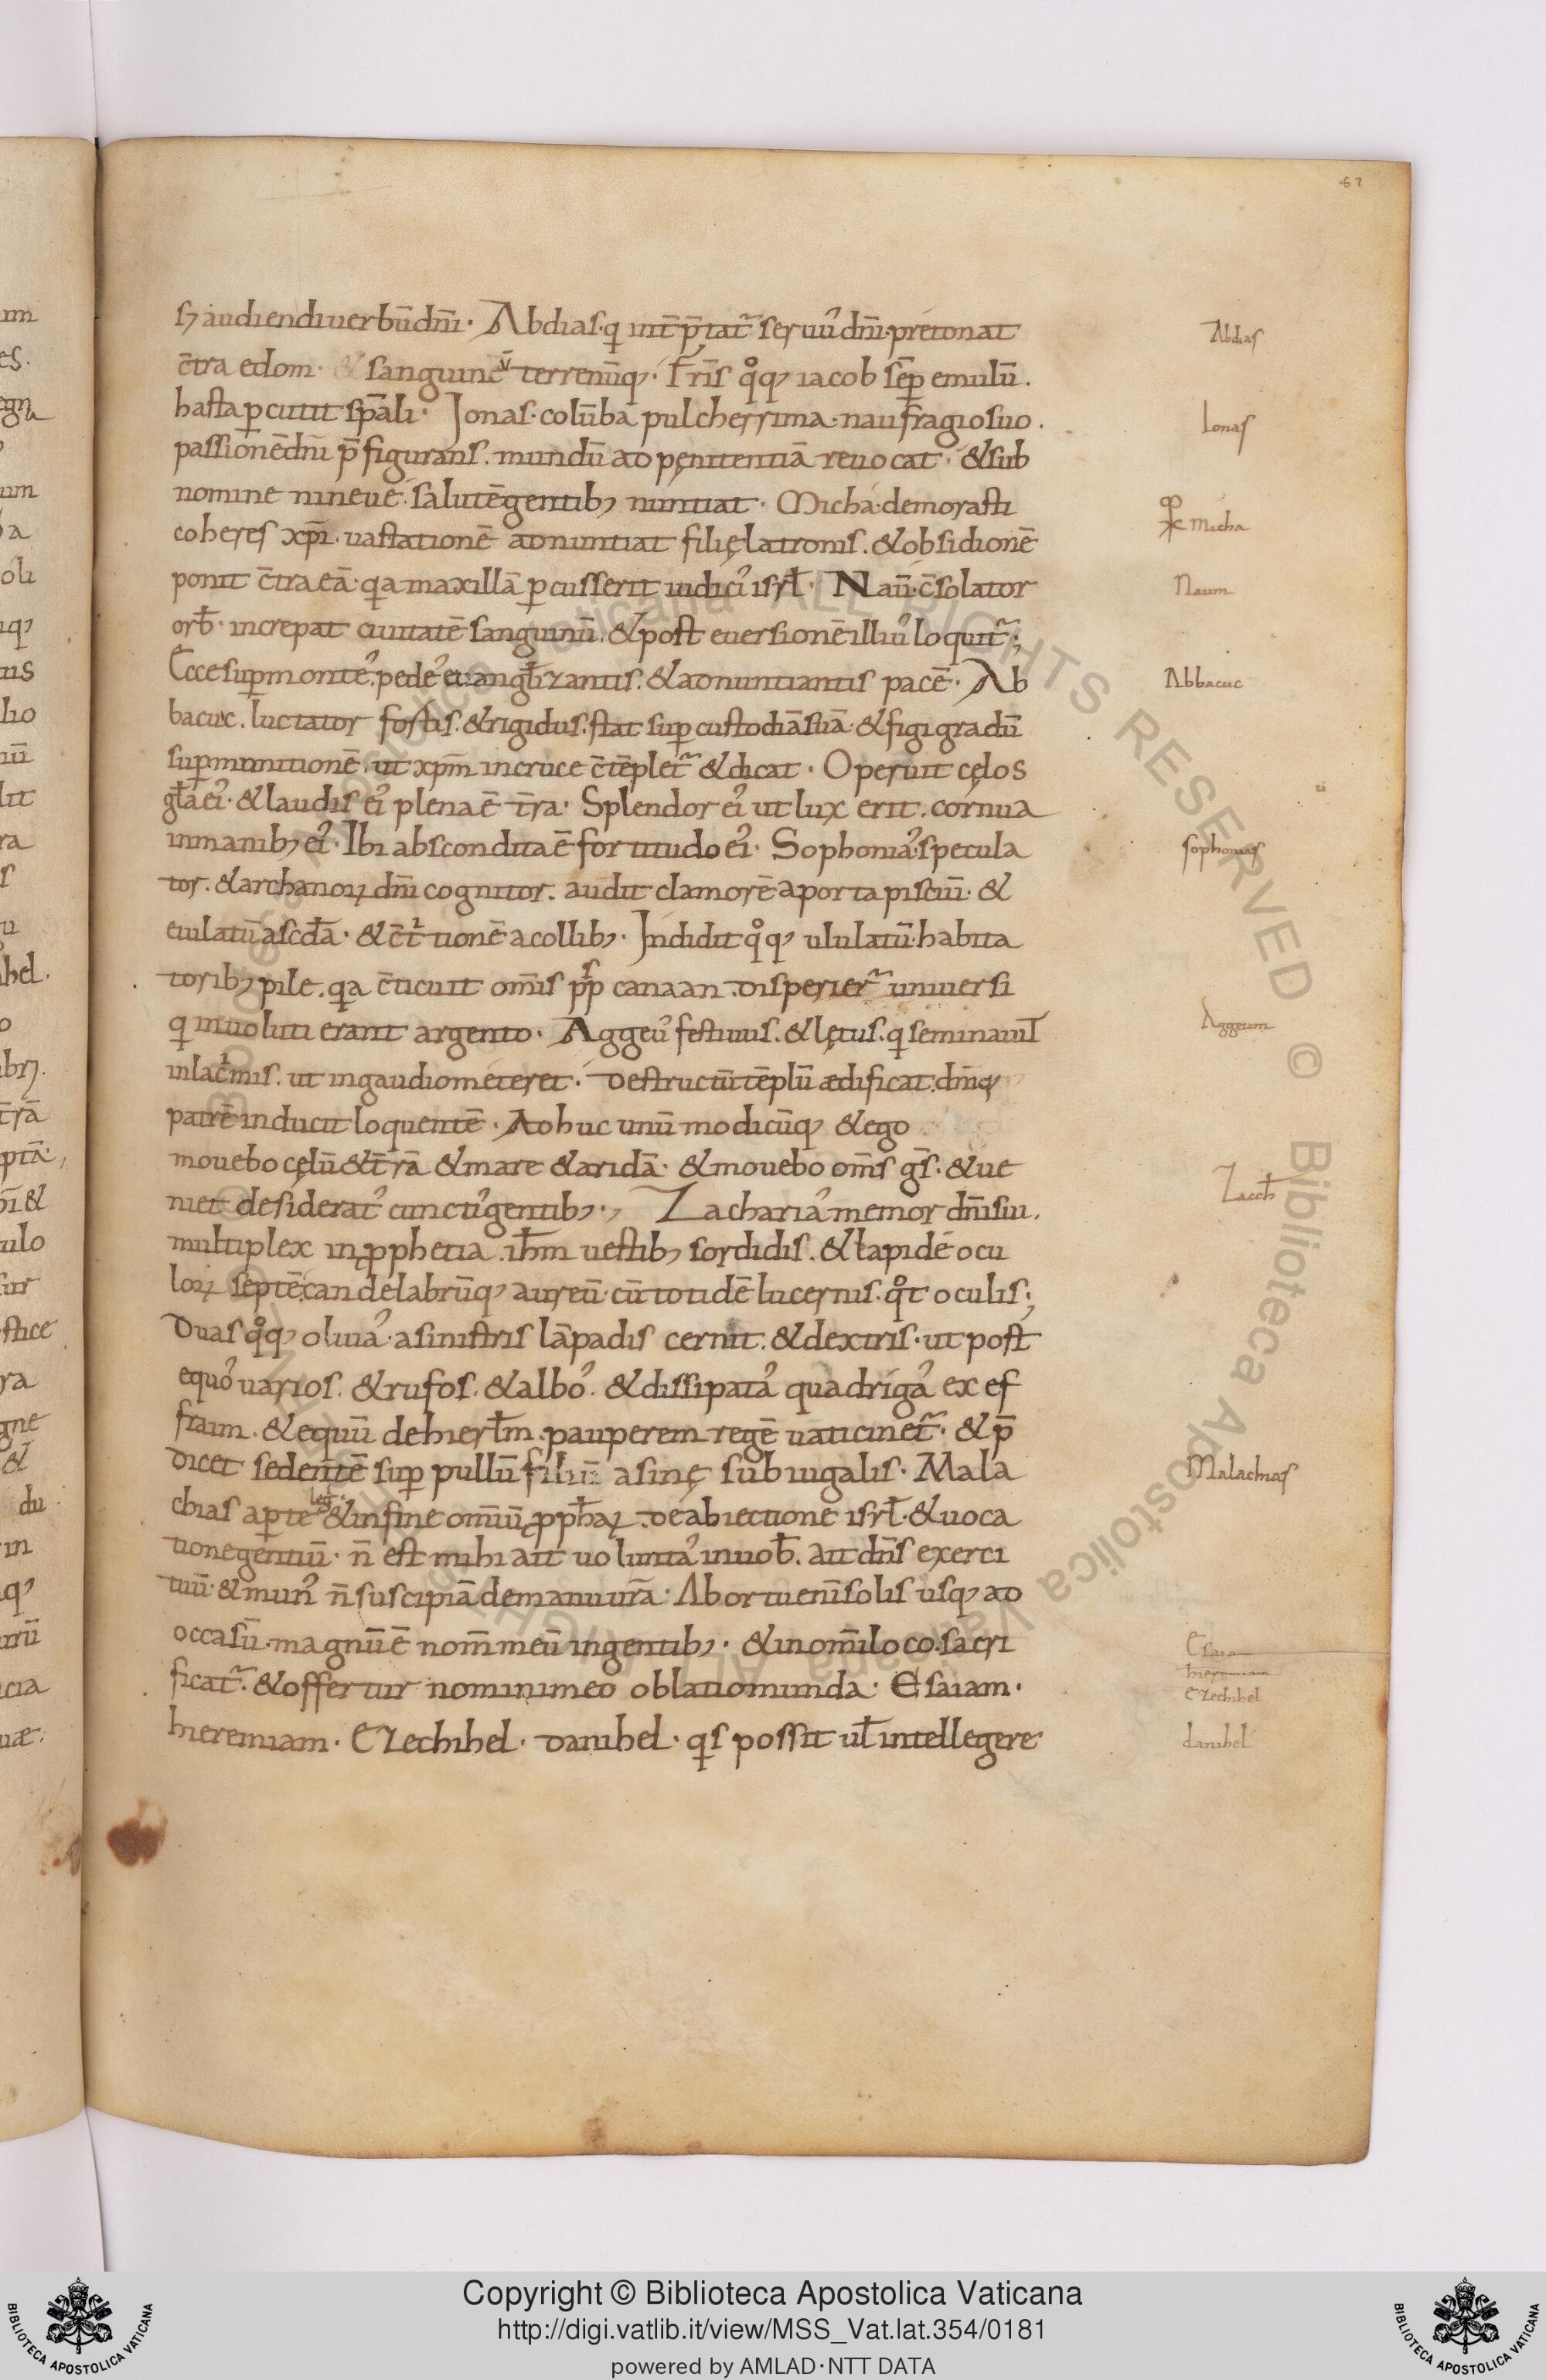 67
sꝫ audiendi uerbū dn̄i. Abdias. q int̄p̄tat᷑ seruus dn̄i. pretonat
c̄tra edom. & sanguineū terrenūq;. Fr̄is qͦq; iacob sēp emulū.
hasta ꝑcutit sp̄ali. Jonas. colūba pulcherrima. naufragio suo.
passionē dn̄i p̄figurans. mundū ad pęnitentiā reuocat. & sub
nomine nineue. salutē gentib; nuntiat. Micha. demorasti
coheres xp̄i. uastationē adnuntiat filię latronis. & obsidionē
ponit c̄tra eā. qa maxillā ꝑcusserit iudici᾽ isrł. Naū. c̄solator
orƀ. increpat ciuitatē sanguinū. & post euersionē illi᾽ loquit᷑;
Ecce suꝑ monte᾽. pede᾽ euanglizantis. & adnuntiantis pacē. Ab
bacuc. luctator fortis. & rigidus. stat suꝑ custodiā suā. & figi gradū
suꝑ munitionē. ut xp̄m in cruce c̄tēplet᷑ & dicat. Operuit cęlos
gła ei᾽. & laudis ei᾽ plena ē t̄ra. Splendor ei᾽ ut lux erit. cornua
in manib; ei᾽. Ibi abscondita ē fortitudo ei᾽. Sophonia᾽. specula
tor. & archanoꝝ dn̄i cognitor. audit clamorē a porta pisciū. &
eiulatū a scđa. & c̄t²tionē a collib;. Indidit qͦq; ululatū. habita
torib; pile. qa c̄ticuit om̄is pp̄s canaan. disperier᷑ uniuersi
q inuoluti erant argento. Aggeu᾽ festiuus. & lętus. q seminauit
in lac̓mis. ut in gaudio meteret. destructū tēplū ædificat. dn̄q;
patrē inducit loquentē. Adhuc unū modicūq; & ego
mouebo cęlū & t̄rā & mare & aridā. & mouebo om̄s gs̄. & ue
niet desiderat᾽ cunctis gentib;., Zacharia᾽ memor dn̄i sui.
multiplex in ꝓphetia. ih̄m uestib; sordidis. & lapidē ocu
loꝝ septē. candelabrūq; aureū. cū totidē lucernis. qͦt oculis;
Duas qͦq; oliua᾽. a sinistris lāpadis cernit. & dextris. ut post
equo᾽ uarios. & rufos. & albo᾽. & dissipata᾽ quadriga᾽ ex ef
fraim. & equū de hierłm. pauperem regē uaticinet᷑. & p̄
dicet sedentē suꝑ pullū filiū asinę subiugalis. Mala
chias aꝑte & in fine omiū ꝓphaꝝ. de abiectione isrł. & uoca
tione gentiū. n̄ est mihi ait uolunta᾽ in uoƀ. ait dn̄s exerci
tuū. & mun᾽ n̄ suscipiā de manu ur̄a. Ab ortu eni᾽ solis usq; ad
occasū. magnū ē nom̄ meū in gentib;. & in om̄i loco. sacri
ficat᷑. & offertur nomini meo oblatio munda. Esaiam.
hieremiam. Ezechihel. danihel. qs possit uł intellegere
Abdias
Ionas
Micha
Naum
Abbacuc
sophonias
Aggeum
Zacch
Malachias
Esaiam
hieremiam
Ezechihel
danihel
Copyright © Biblioteca Apostolica Vaticana
http://digi.vatlib.it/view/MSS_Vat.lat.354/0181
powered by AMLAD·NTT DATA
BIBLIOTECA APOSTOLICA VATICANA
BIBLIOTECA APOSTOLICA VATICANA